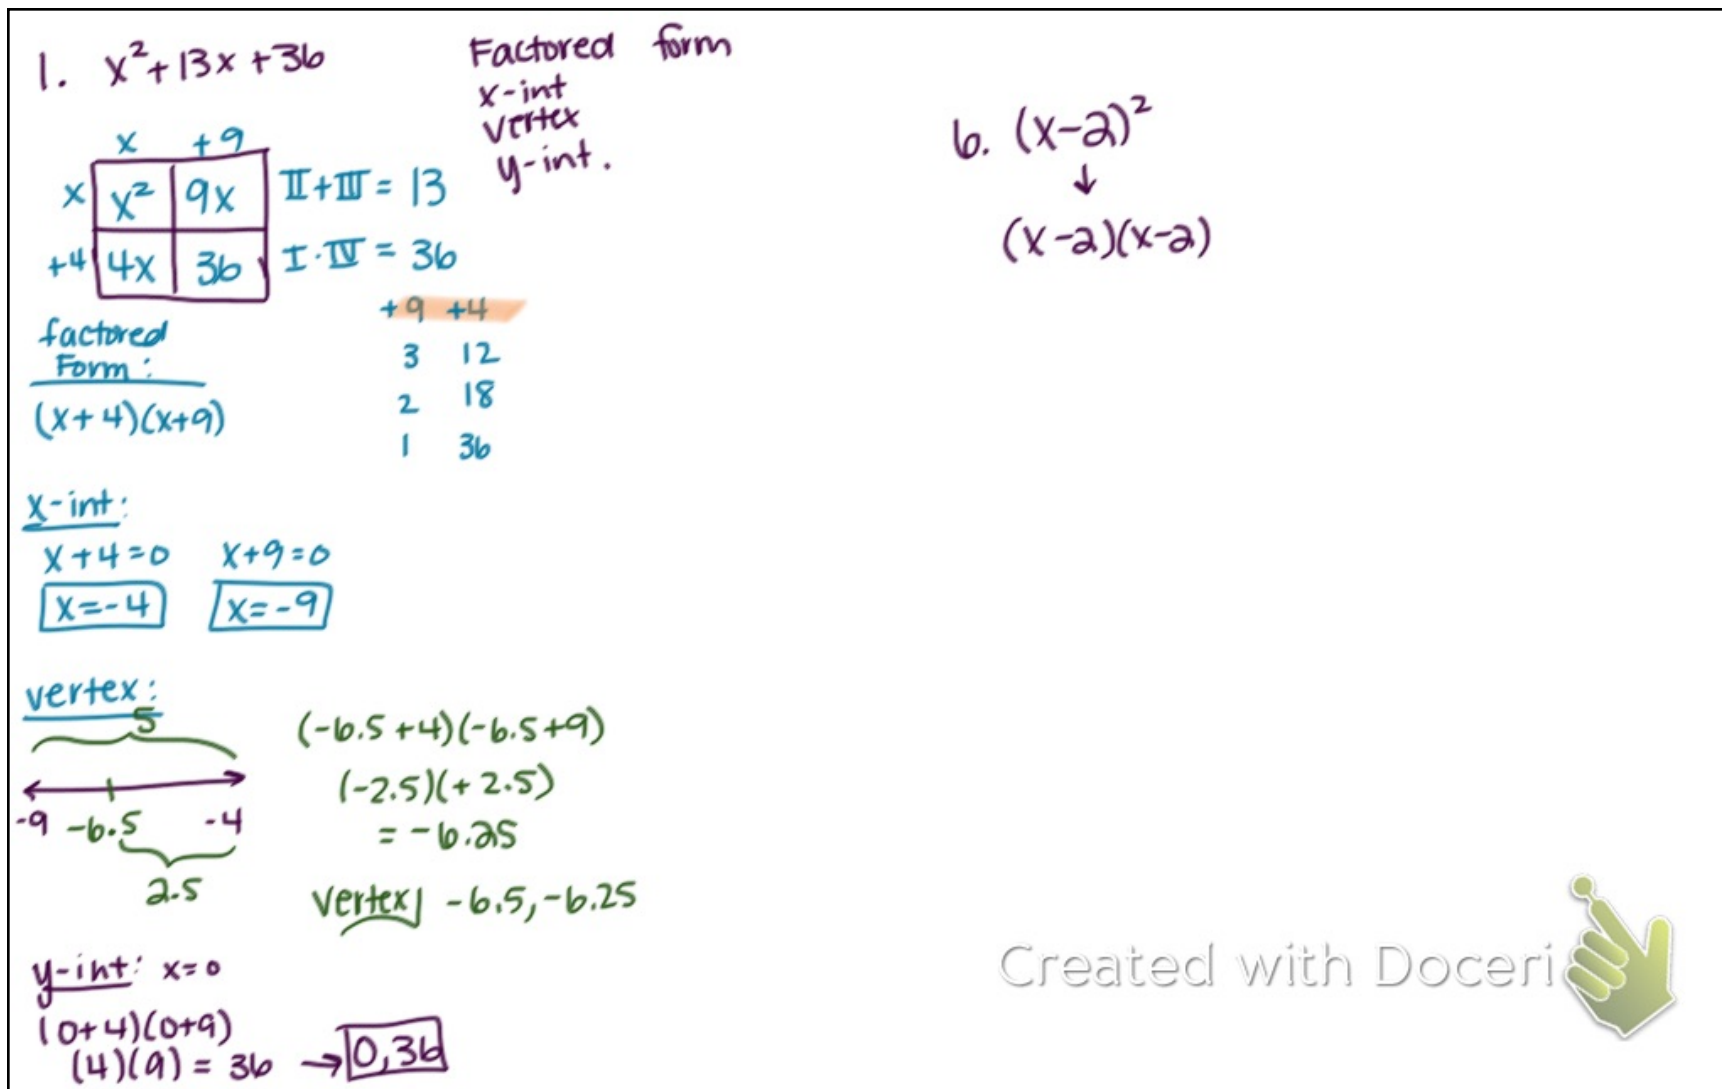 1. x²+13x+36
Factored form
x-int
vertex
y-int.
x +9
x x² 9x II+III = 13
+4 4x 36 I·IV = 36
+9 +4
3 12
2 18
1 36
factored
Form:
(x+4)(x+9)
x-int:
x+4=0 x+9=0
x=-4 x=-9
vertex:
5
-9 -6.5 -4
2.5
(-6.5+4)(-6.5+9)
(-2.5)(+2.5)
= -6.25
vertex| -6.5,-6.25
y-int: x=0
(0+4)(0+9)
(4)(9) = 36 → 0,36
6. (x-2)²
↓
(x-2)(x-2)
Created with Doceri